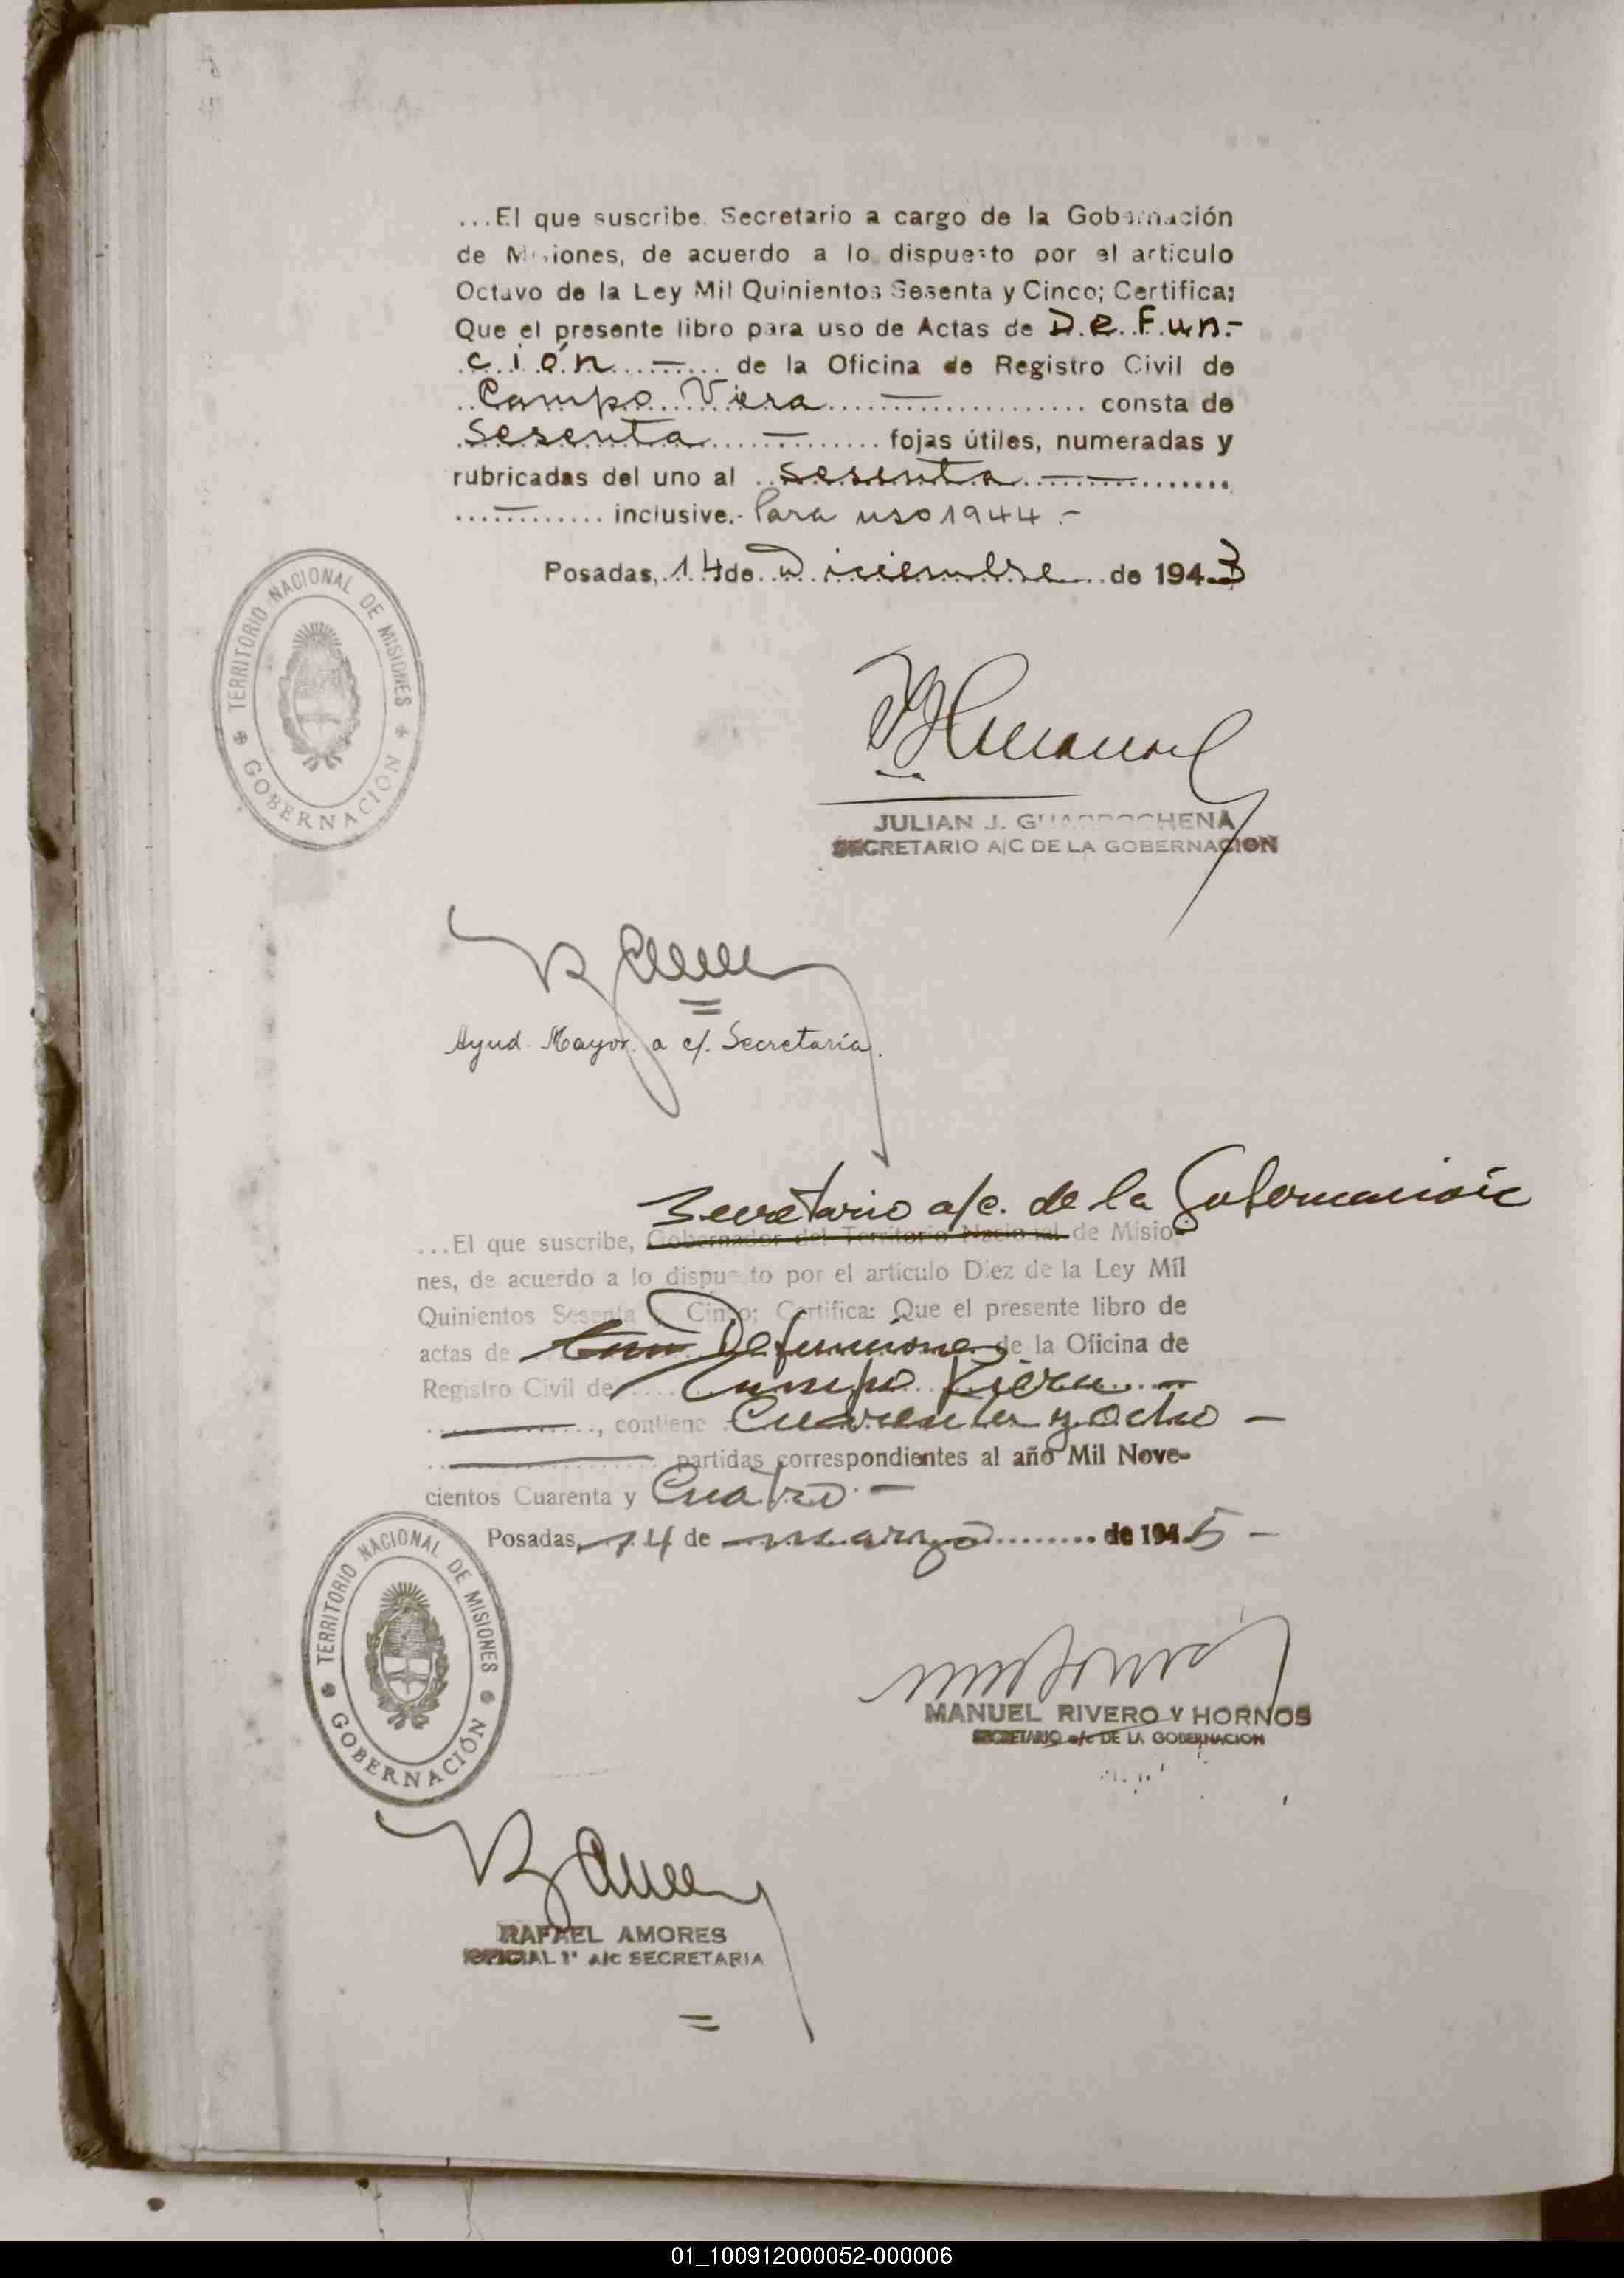 ...El que suscribe. Secretario a cargo de la Gobernación
de Misiones, de acuerdo a lo dispuesto por el articulo
Octavo de la Ley Mil Quinientos Sesenta y Cinco; Certifica:
Que el presente libro para uso de Actas de Defun-
ción de la Oficina de Registro Civil de
Campo Viera consta de
Sesenta fojas útiles, numeradas y
rubricadas del uno al sesenta
inclusive.- Para uso 1944.-
Posadas, 14 de Diciembre de 1943
TERRITORIO NACIONAL DE MISIONES
GOBERNACIÓN
JULIAN J. CHENA
SECRETARIO A/C DE LA GOBERNACION
Ayud. Mayor a c/. Secretaría.
Secretario a/c. de la Gobernación
...El que suscribe, Gobernador del Territorio Nacional de Misio-
nes, de acuerdo a lo dispuesto por el artículo Diez de la Ley Mil
Quinientos Sesenta y Cinco; Certifica: Que el presente libro de
actas de Defunciones de la Oficina de
Registro Civil de Campo Viera
, contiene Cuarenta y ocho
partidas correspondientes al año Mil Nove-
cientos Cuarenta y Cuatro.
Posadas, 14 de marzo de 1945
TERRITORIO NACIONAL DE MISIONES
GOBERNACIÓN
MANUEL RIVERO Y HORNOS
SECRETARIO a/c DE LA GOBERNACION
RAFAEL AMORES
OFICIAL 1° A/C SECRETARIA
01_100912000052-000006